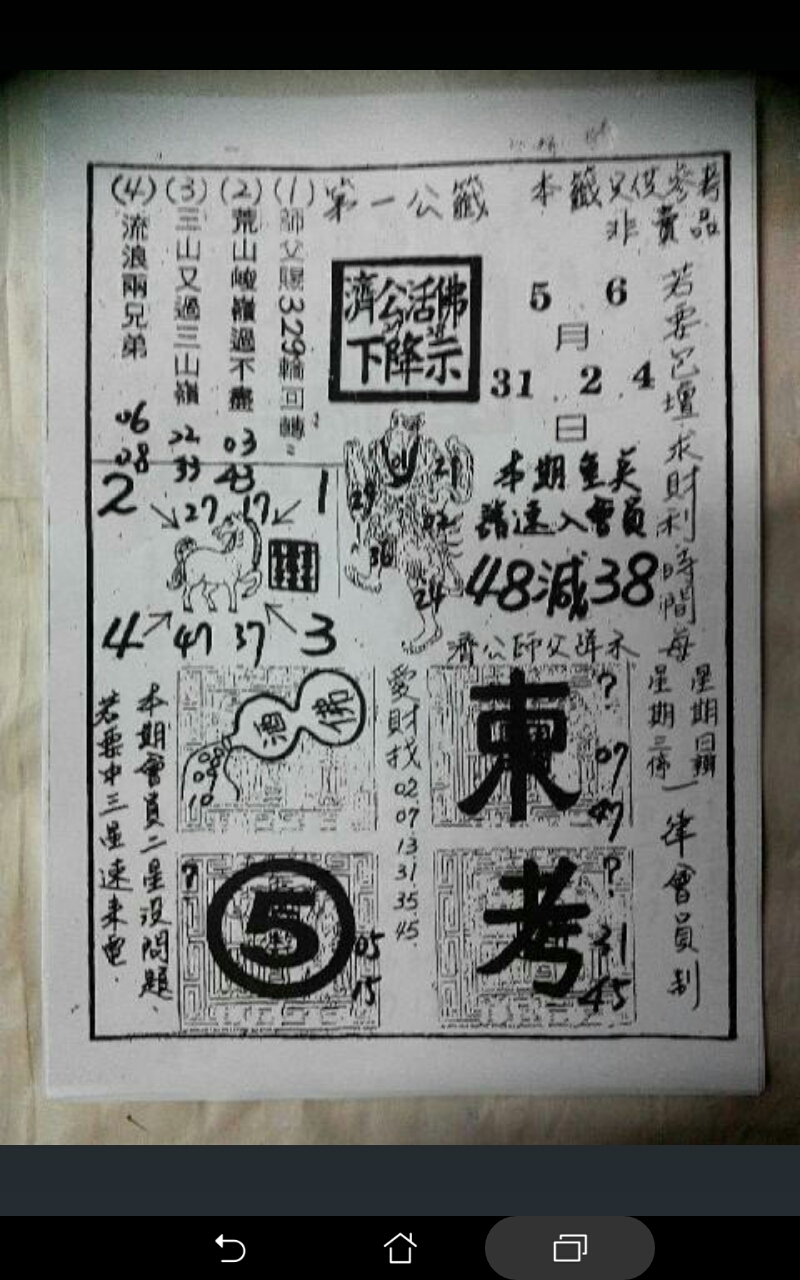 本籤只供參考
非賣品
第一公籤
(1) 師父賜329輪回轉
(2) 荒山峻嶺過不盡
03
43
(3) 三山又過三山嶺
22
33
(4) 流浪兩兄弟
06
08
濟公活佛
下降示
5 6
月
31 2 4
日
若要
壇求財利時間每
星期日
星期三
一律會員制
本期
請速入會員
48減38
濟公師父
2
27
17
1
4
47
37
3
29
21
02
36
24
本期會員二星沒問題
若要中三星速來電
酒
佛
09
10
愛財找
02
07
13
31
35
45
東
?
07
47
?
5
05
15
考
?
31
45